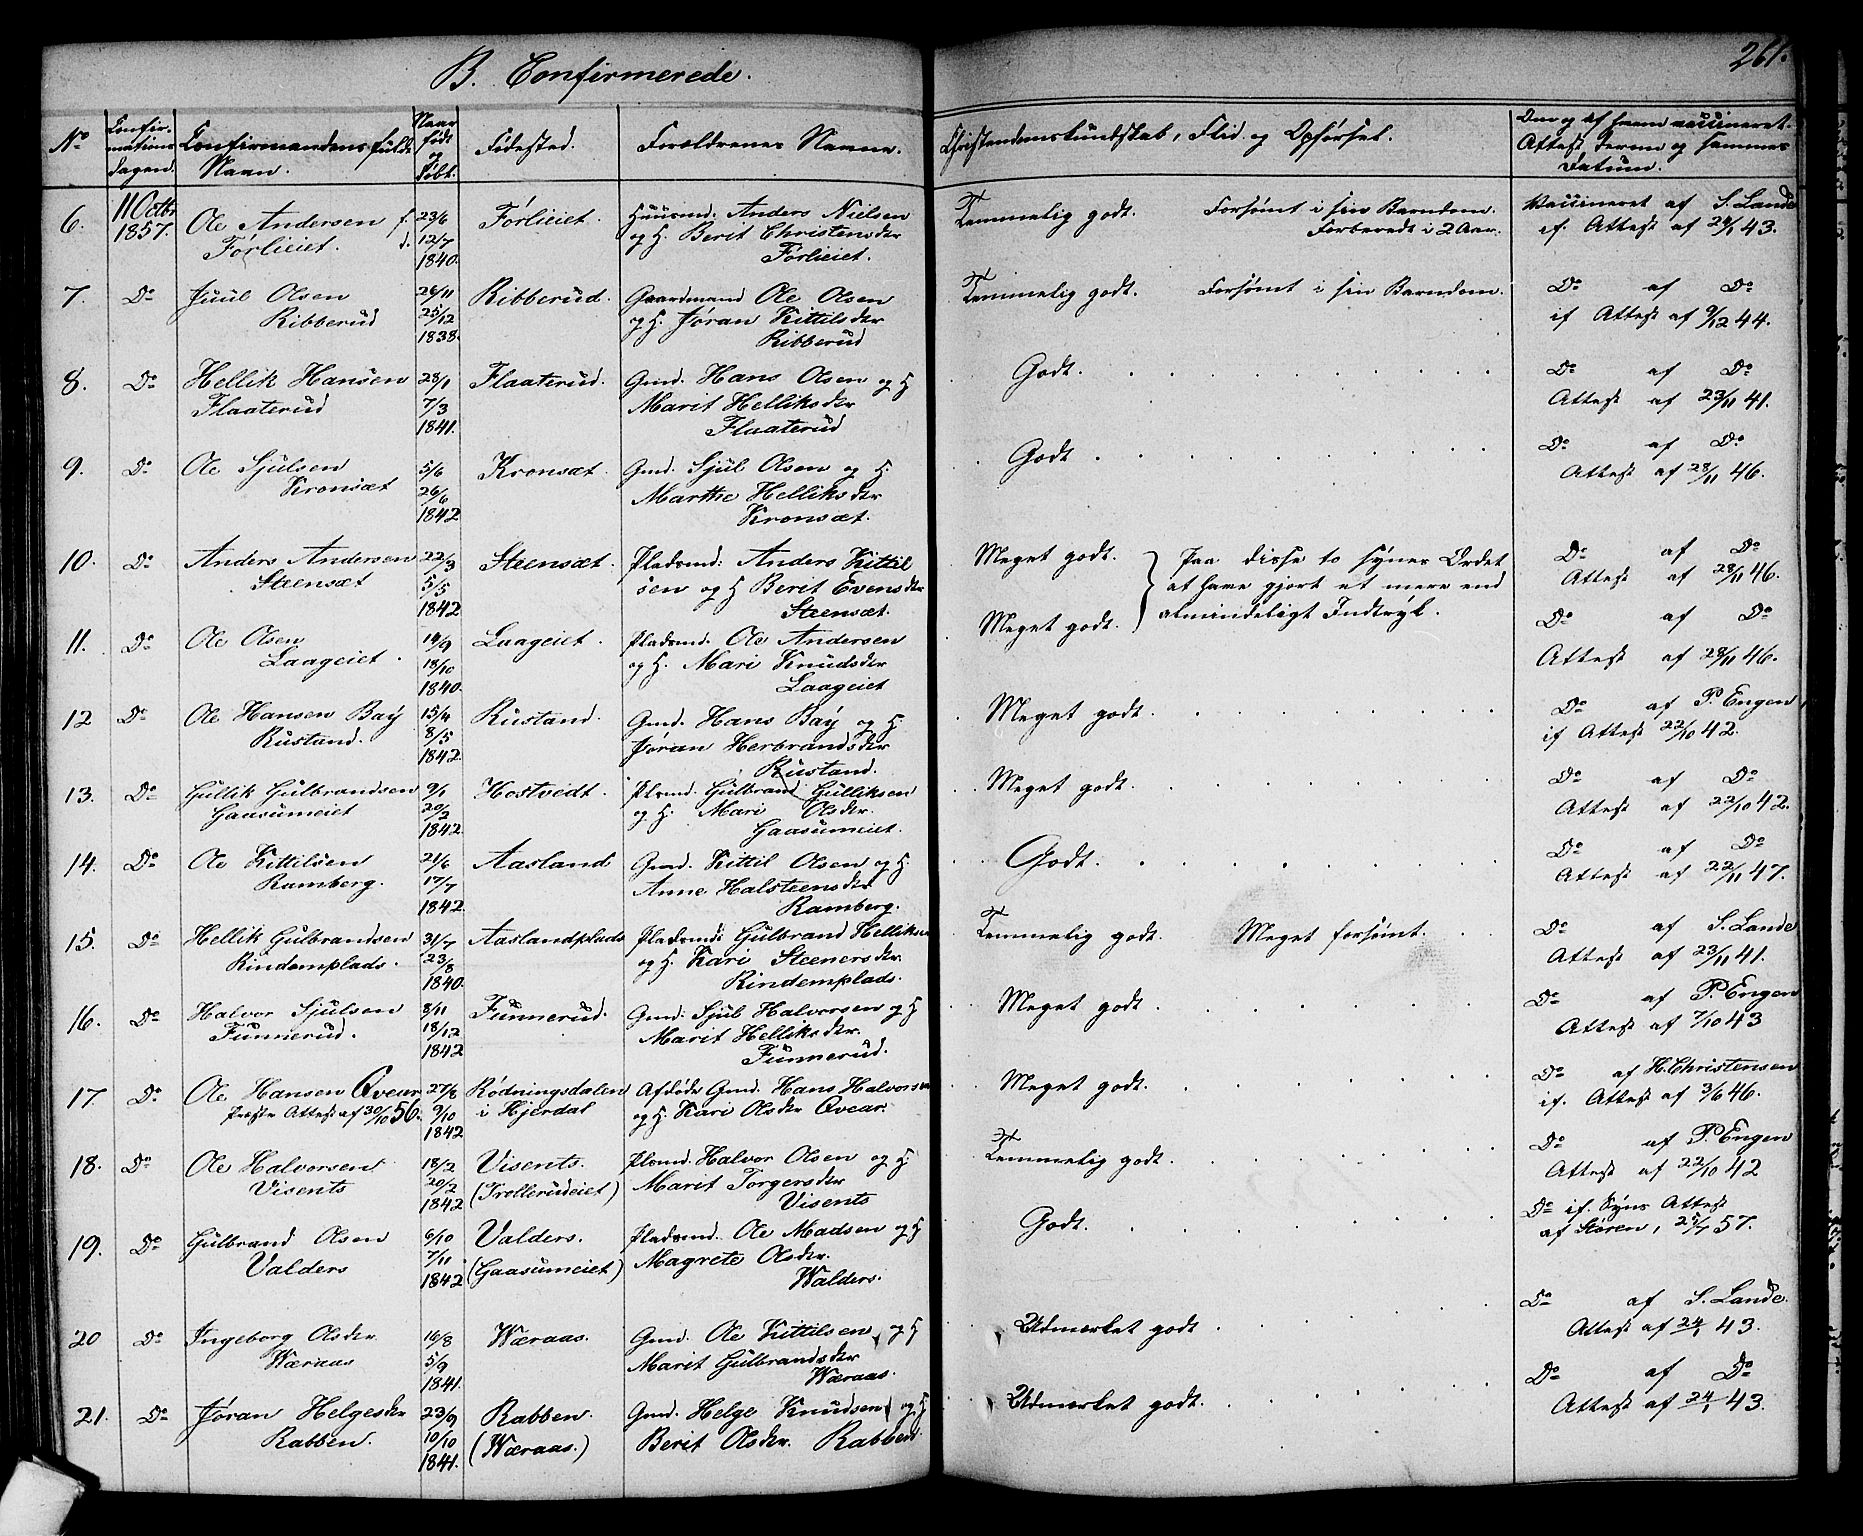 B. Confirmerede.
261.
No
Confir-
mations
dagen.
Confirmandens fulde
Navn.
Naar
født
og
døbt.
Fødested.
Forældrenes Navne.
Christendomskundskab, Flid og Opførsel.
Om og af hvem vaccineret.
Attest derom og sammes
Datum.
6. 11 Octbr 1857. Ole Andersen f. 23/6 Förlieiet. Huusmd. Anders Nielsen Temmelig godt. Forsømt i sin Barndom. Vaccineret af S. Lande
Förlieiet. d. 12/7 og H. Berit Christensdtr Forberedt i 2 Aar. if. Attest af 24/1 43.
1840. Förlieiet.
7. Do Juul Olsen 26/11 Ribberud. Gaardmand Ole Olsen Temmelig godt. Forsømt i sin Barndom. Do af Do
Ribberud 25/12 og H. Jøran Kittilsdtr if Attest af 9/12 44.
1838. Ribberud
8. Do Hellik Hansen 28/1 Flaaterud. Gmd. Hans Olsen og H Godt. Do af Do
Flaaterud 7/3 Marit Helliksdtr Attest af 23/11 41.
1841. Flaaterud
9. Do Ole Sjulsen 5/6 Kronsæt. Gmd. Sjul Olsen og H. Godt Do af Do
Kronsæt 26/6 Marthe Helliksdtr Attest af 28/11 46.
1842 Kronsæt.
10. Do Anders Andersen 22/3 Steensæt. Pladsmd: Anders Kittil Meget godt. Paa disse to synes Ordet Do af Do
Steensæt 5/5 sen og H Berit Evensdtr at have gjort et mere end Attest af 28/11 46.
1842 Steensæt. almindeligt Indtryk.
11. Do Ole Olsen 14/9 Laageiet. Pladsmd. Ole Andersen Meget godt. Do af Do
Laageiet. 18/10 og H. Mari Knudsdtr Attest af 28/11 46.
1840. Laageiet
12 Do Ole Hansen Bay 15/4 Rustand. Gmd. Hans Bay og H. Meget godt. Do af P. Engen
Rustand. 8/5 Jøran Herbrandsdtr if Attest 22/10 42.
1842. Rustand.
13. Do Gullik Gulbrandsen 9/1 Hostvedt. Plsmd. Gulbrand Gulliksen Meget godt. Do af Do
Gaasumeiet 20/2 og H. Mari Olsdtr. Attest af 22/10 42.
1842. Gaasumeiet.
14. Do Ole Kittilsen 21/6 Aasland Gmd. Kittil Olsen og H Godt. Do af Do
Ramberg. 17/7 Anne Halsteensdtr Attest af 22/11 47.
1842. Ramberg.
15. Do Hellik Gulbrandsen 31/7 Aaslandplads Pladsmd: Gulbrand Helliksen Temmelig godt. Meget forsømt. Do af S. Lande
Rindemplads. 23/8 og H. Kari Steenersdtr. Attest af 23/11 41.
1840. Rindemplads.
16. Do Halvor Sjulsen 8/11 Funnerud. Gmd: Sjul Halvorsen og H Meget godt. Do af P. Engen
Funnerud. 18/12 Marit Helliksdtr. Attest af 7/10 43
1842 Funnerud.
17. Do Ole Hansen Qvear 27/8 Rødningsdalen Afdøde Gmd. Hans Halvorsen Meget godt. Do af H. Christensen
Præste Attest af 30/10 56. 9/10 i Hjerdal og H. Kari Olsdtr Qvear. if. Attest af 3/6 46.
1842
18. Do Ole Halvorsen 18/2 Visents. Plsmd. Halvor Olsen og H Temmelig godt. Do af P. Engen
Visents 20/2 (Trollerudeiet) Marit Torgersdtr Attest af 22/10 42
1842 Visents
19. Do Gulbrand Olsen 6/10 Valders. Pladsmd. Ole Madsen og H Godt. Do if. Syns Attest
Valders 7/11 (Gaasumeiet) Magrete Olsdtr. af Støren, 25/7 57.
1842 Walders.
20 Do Ingeborg Olsdtr. 16/8 Wæraas. Gmd. Ole Kittilsen, og H Udmærket godt. Do af S. Lande.
Wæraas 5/9 Marit Gulbrandsdtr Attest af 24/1 43.
1841. Wæraas.
21. Do Jøran Helgesdtr 23/9 Rabben. Gmd. Helge Knudsen og H Udmærket godt. Do af Do
Rabben. 10/10 (Wæraas.) Berit Olsdtr. Rabben. Attest af 24/1 43.
1841.